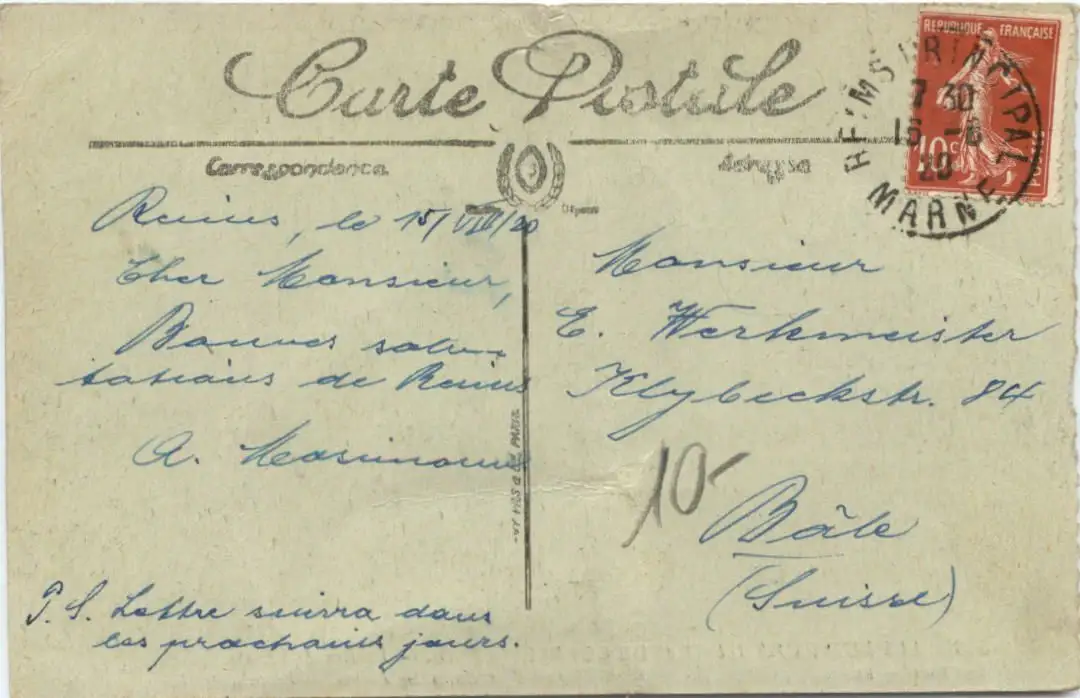 Carte Postale
Correspondance
Adresse
REPUBLIQUE FRANÇAISE
10c
REIMS PRINCIPAL
7 30
16 - 8
20
MARNE
Reims, le 15/VIII/20
Cher Monsieur,
Bonnes salu-
tations de Reims
A.
P. S. Lettre suivra dans
les prochains jours.
Monsieur
E. Werkmeister
Klybeckstr. 84
Bâle
(Suisse)
10-